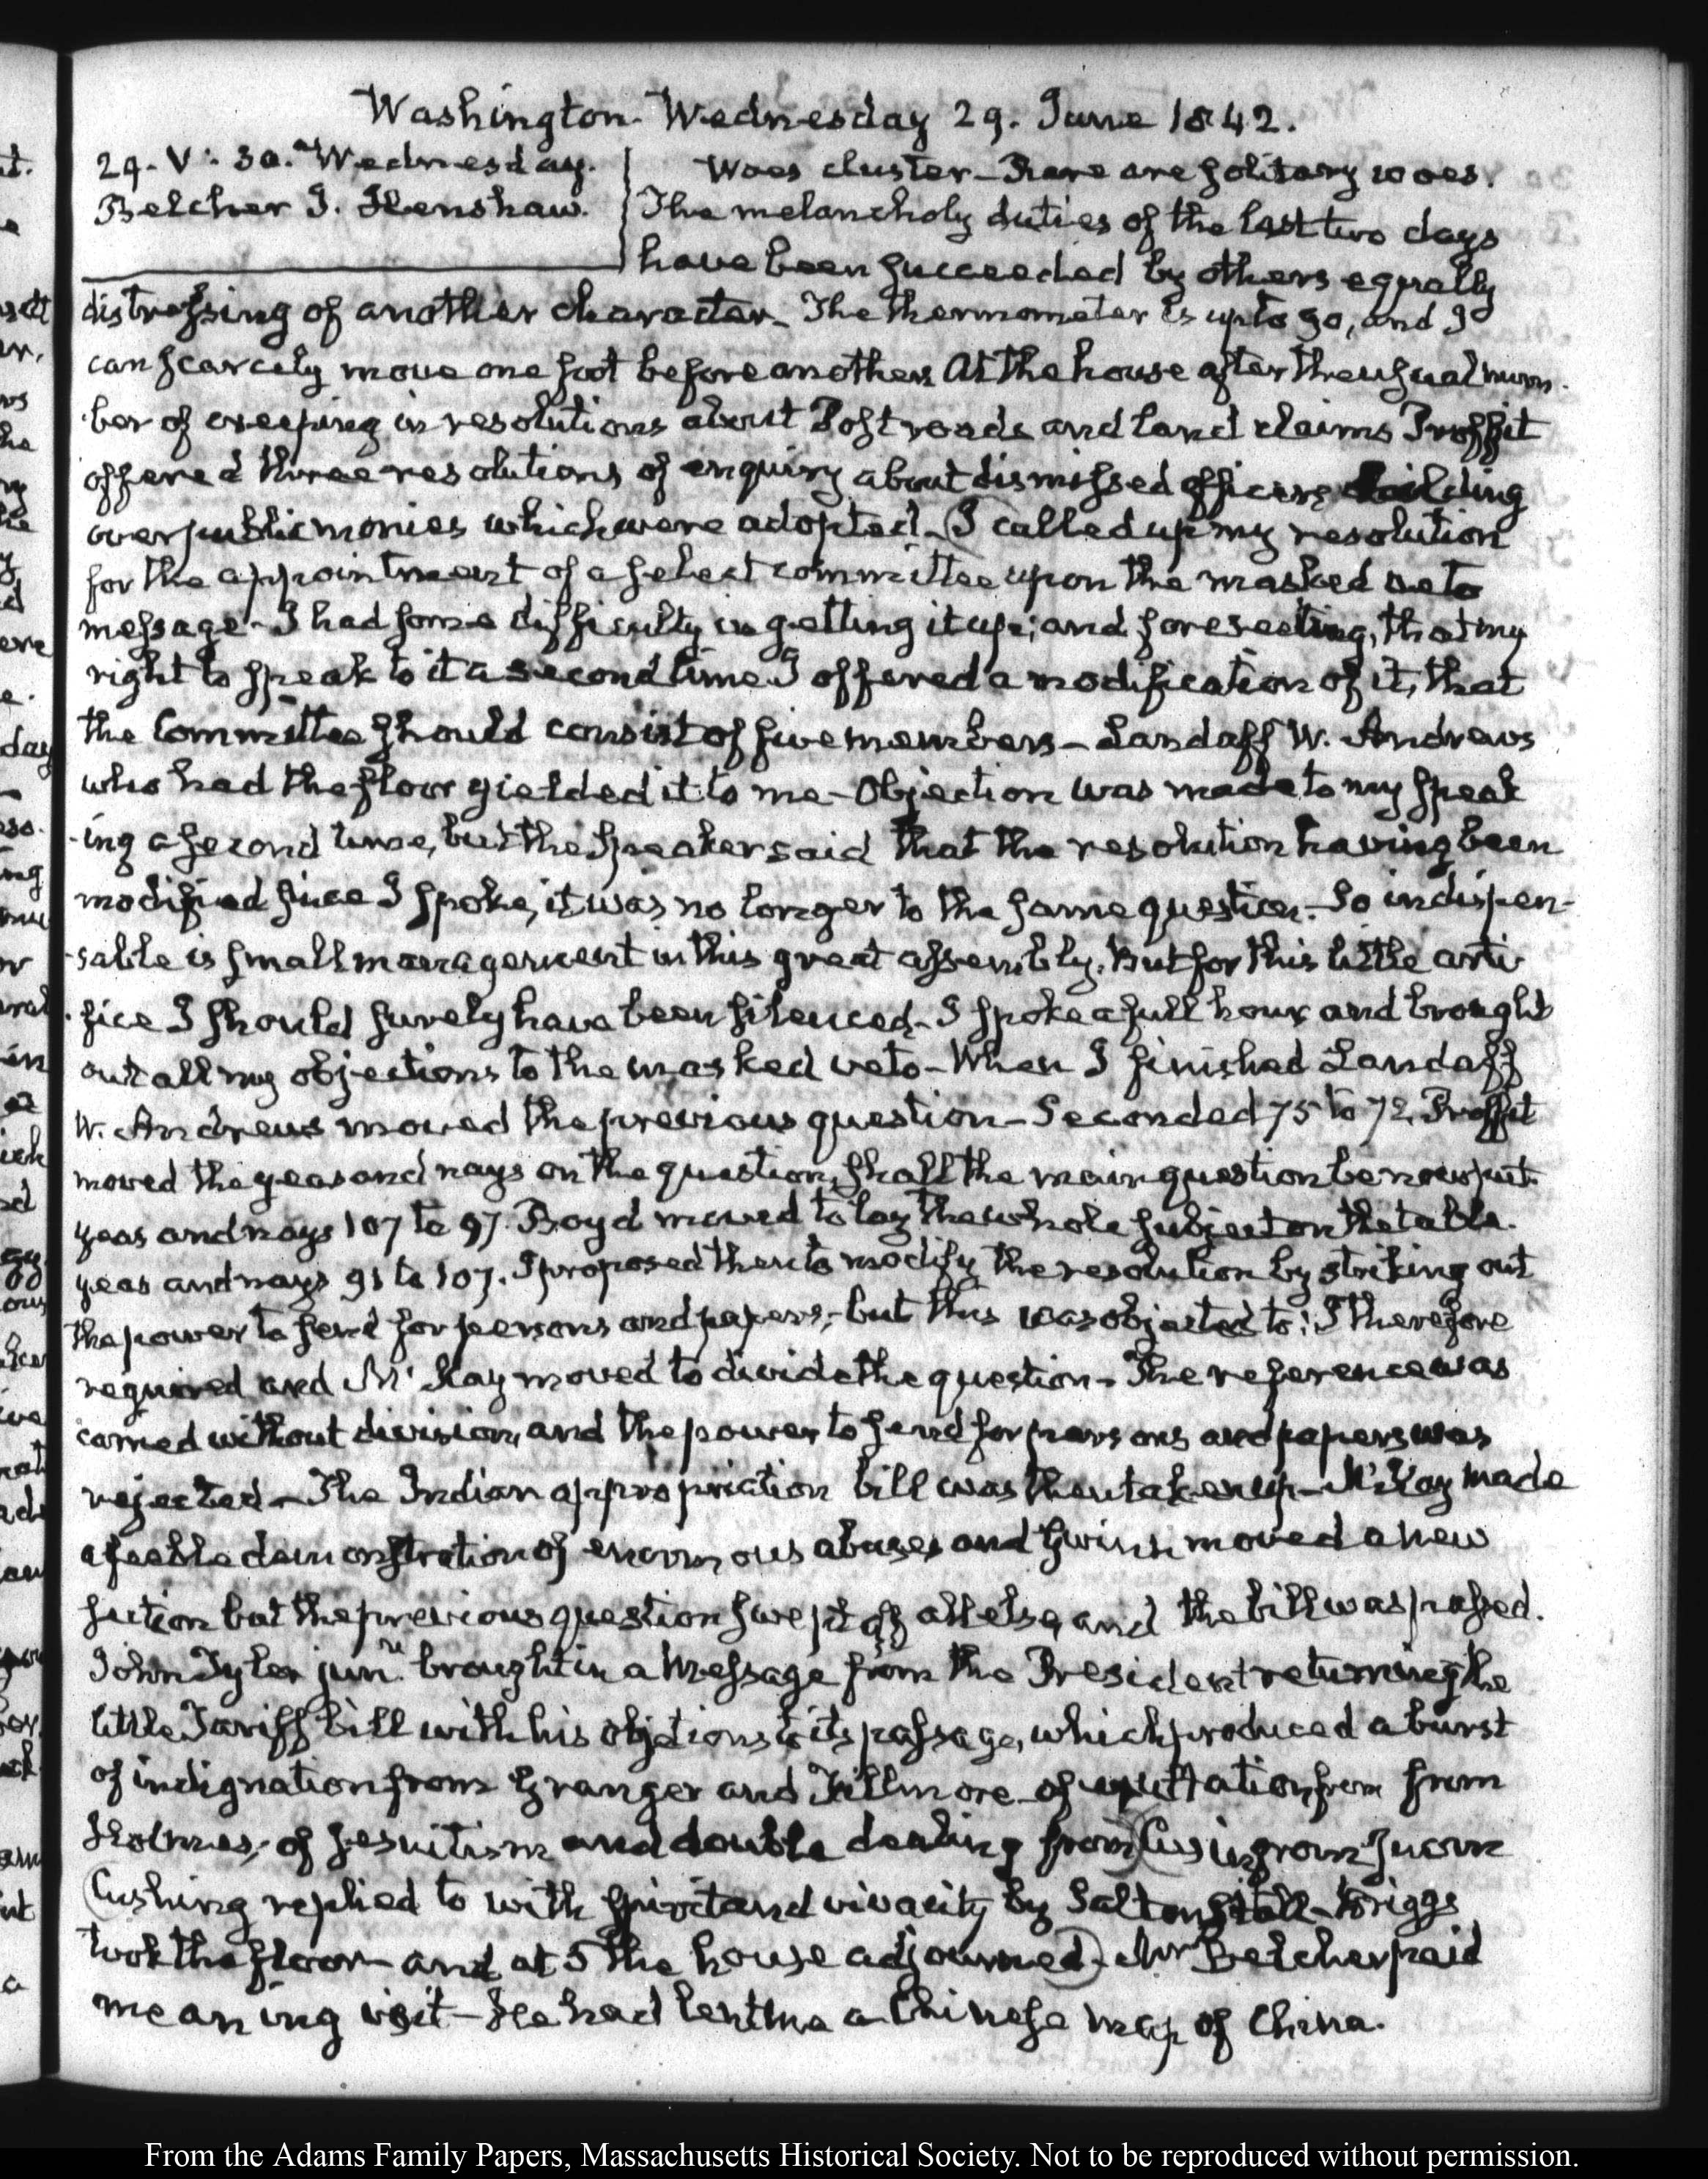 Washington Wednesday 29. June 1842.
29. V: 30. Wednesday.
Belcher J. Henshaw.
Woes cluster—Rare are solitary woes.
The melancholy duties of the last two days
have been succeeded by others equally
distressing of another character— The thermometer is up to 90, and I
can scarcely move one foot before another. At the house after the usual num-
-ber of creeping in resolutions about Post roads and land claims Proffit
offered three resolutions of enquiry about dismissed officers
over public monies which were adopted— I called up my resolution
for the appointment of a select committee upon the masked veto
message— I had some difficulty in getting it up; and foreseeing, that my
right to speak to it a second time I offered a modification of it, that
the Committee should consist of five members— Landaff W. Andrews
who had the floor yielded it to me—Objection was made to my speak
-ing a second time, but the Speaker said that the resolution having been
modified since I spoke, it was no longer to the same question.—So indispen-
-sable is small management in this great assembly. But for this little arti
-fice I should surely have been silenced— I spoke a full hour and brought
out all my objections to the masked veto—When I finished Landaff
W. Andrews moved the previous question—Seconded 75 to 72. Proffit
moved the yeas and nays on the question, shall the main question be now put
yeas and nays 107 to 97. Boyd moved to lay the whole subject on the table.
yeas and nays 91 to 107. I proposed then to modify the resolution by striking out
the power to send for persons and papers; but this was objected to; I therefore
required and Mc Kay moved to divide the question— The reference was
carried without division, and the power to send for persons and papers was
rejected— The Indian appropriation bill was then taken up—McKay made
a feeble demonstration of enormous abuses and Gwin moved a new
section but the previous question swept off all else, and the bill was passed.
John Tyler junr. brought in a Message from the President returning the
little Tariff bill with his objections to its passage, which produced a burst
of indignation from Granger and Fillmore—of from from
Holmes; of jesuitism and double dealing from
Cushing replied to with spirit and vivacity by Saltonstall—Briggs
took the floor—and at 5 the house adjourned— Mr Belcher paid
me an ing visit—He had lent me a Chinese map of China.
From the Adams Family Papers, Massachusetts Historical Society. Not to be reproduced without permission.